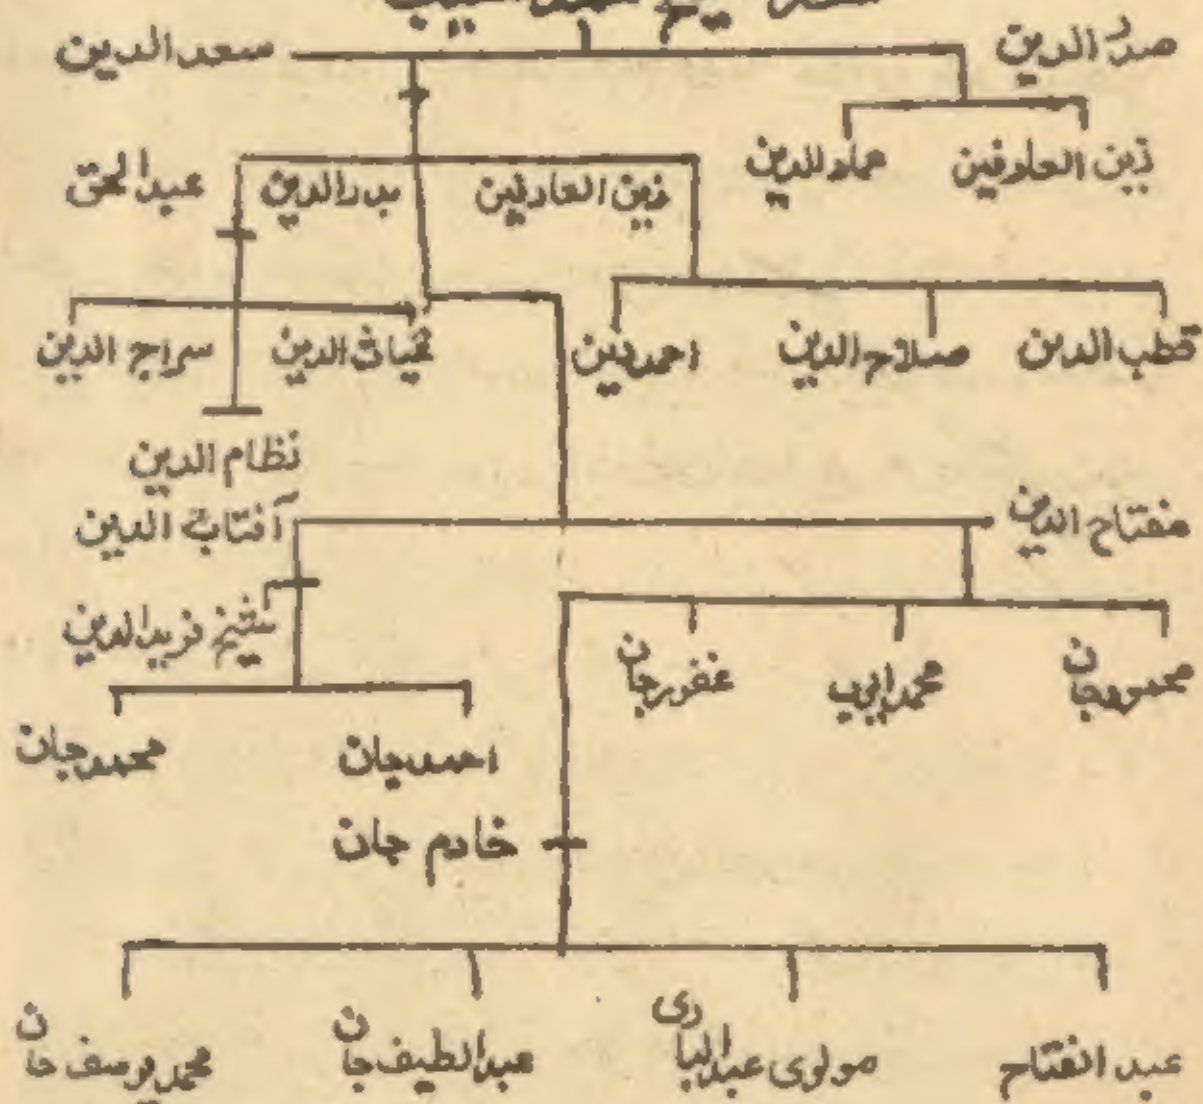 صدر الدین سعد الدین
زین العارفین عماد الدین
زین العارفین بدر الدین عبد الحق
قطب الدین صلاح الدین احمد غیاث الدین سراج الدین
نظام الدین
مفتاح الدین آفتاب الدین
شیخ فرید الدین
محمود جان محمد ایوب غفور جان
احمد جان محمد جان
خادم جان
عبد الفتاح مولوی عبد الباری عبد الطیف جان محمد یوسف جان